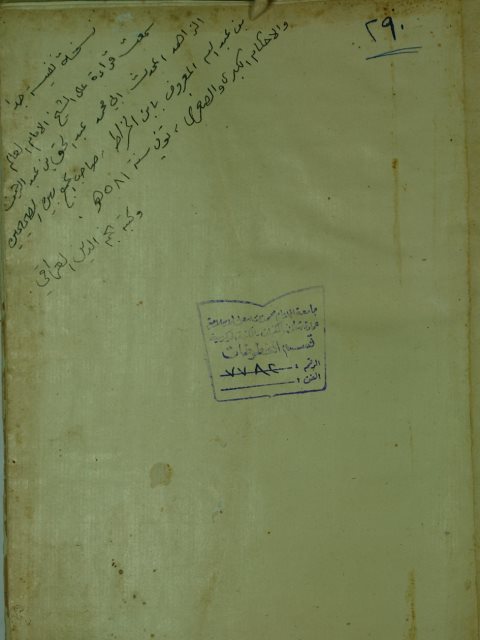 ٢٩٠
نسخة نفيسة جدا
سمعت قراءة على الشيخ الامام العالم
الزاهد المحدث ابي محمد عبد الحق بن عبد الرحمن
بن عبد الله المعروف بابن الخراط، صاحب الجمع بين الصحيحين
والاحكام الكبرى والصغرى، توفي سنة ٥٨١ هـ.
وكتبه نجم الدين العراقي
جامعة الامام محمد بن سعود الاسلامية
قسم المخطوطات
الرقم : ٧٧٨٢
الفن :